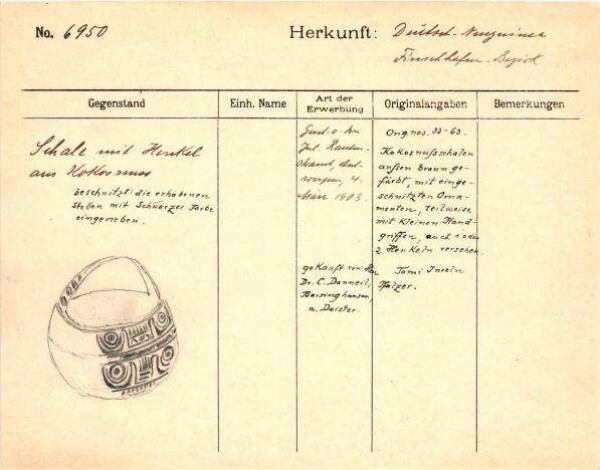 No. 6950
Herkunft: Deutsch-Neuguinea
Finschhafen-Bezirk
Gegenstand
Einh. Name
Art der Erwerbung
Originalangaben
Bemerkungen
Schale mit Henkel
aus Kokosnuss
beschnitzt: die erhabenen
Stellen mit Schwarzer Farbe
eingerieben.
Gust. v. Hn
Jul.
werpen, 4.
März 1903.
gekauft von Hn
Dr. C. Danneil,
Barsinghausen
a. Deister
Orig. nos. 33-63.
Kokosnußschalen
außen braun ge-
färbt, mit einge-
schnitzten Orna-
menten, teilweise
mit kleinen Hand-
griffen, auch 1 oder
2 Henkeln versehen.
Tami Inseln